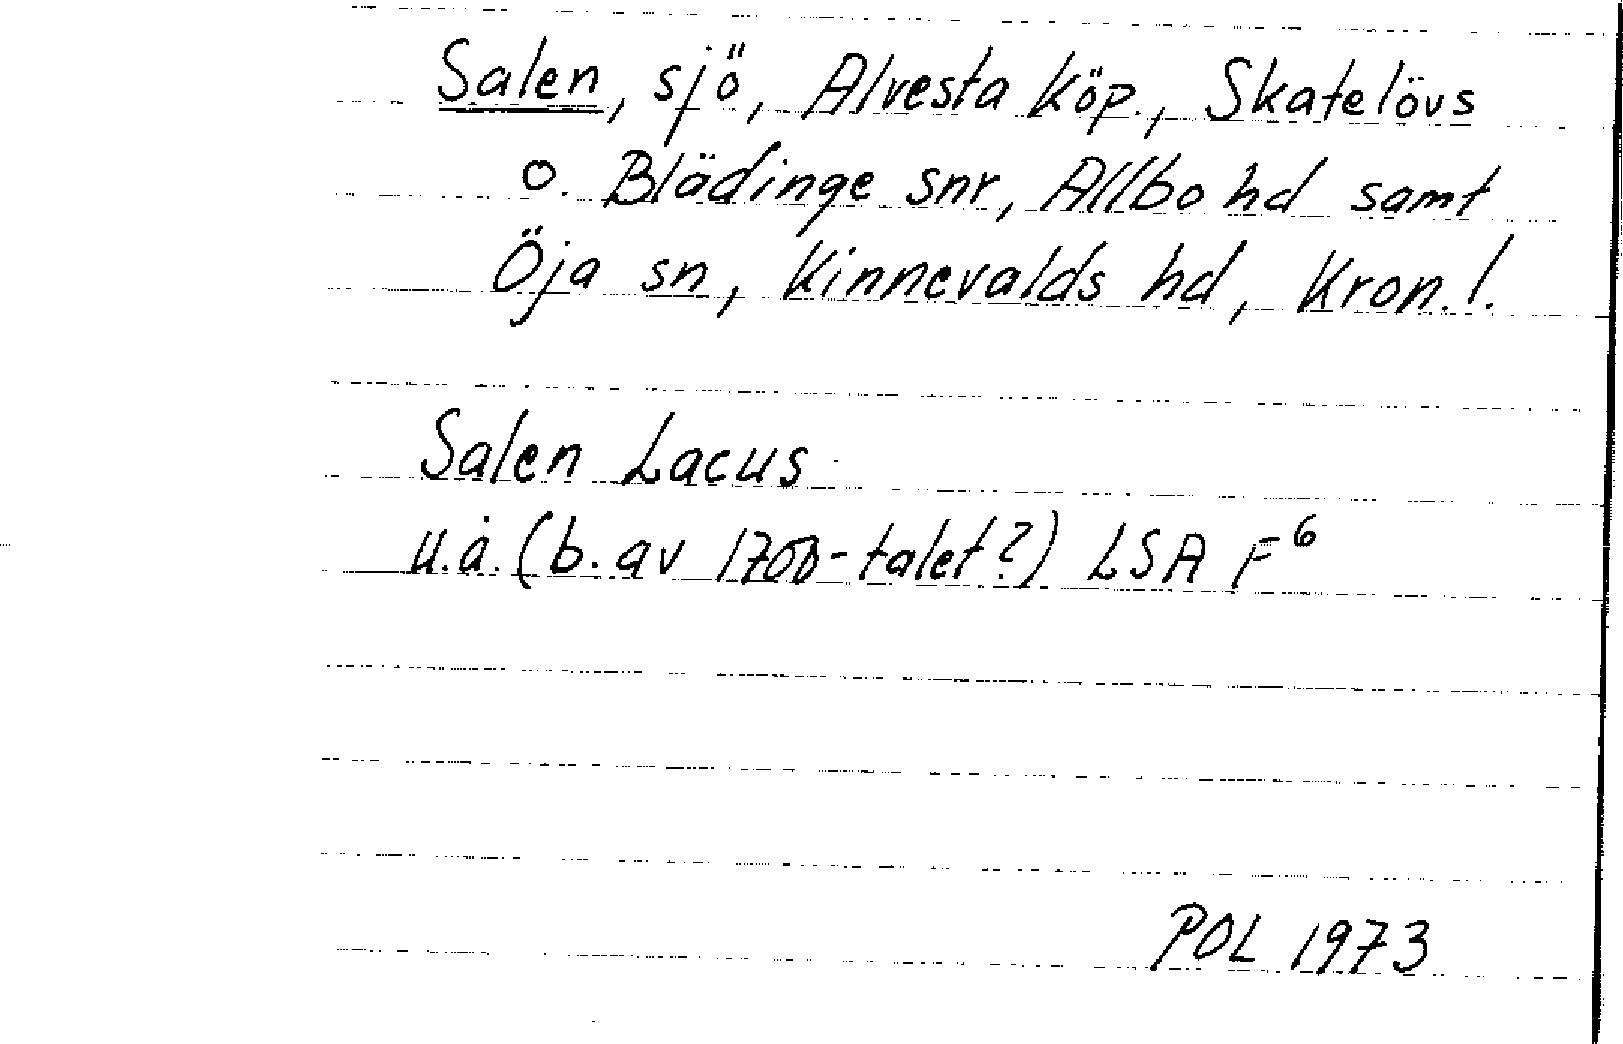 Salen, sjö, Alvesta köp., Skatelövs
o. Blädinge snr, Allbo hd samt
Öja sn, Kinnevalds hd, Kron. l.
Salen Lacus
u.å. (b. av 1700-talet?) LSA F⁶
POL 1973